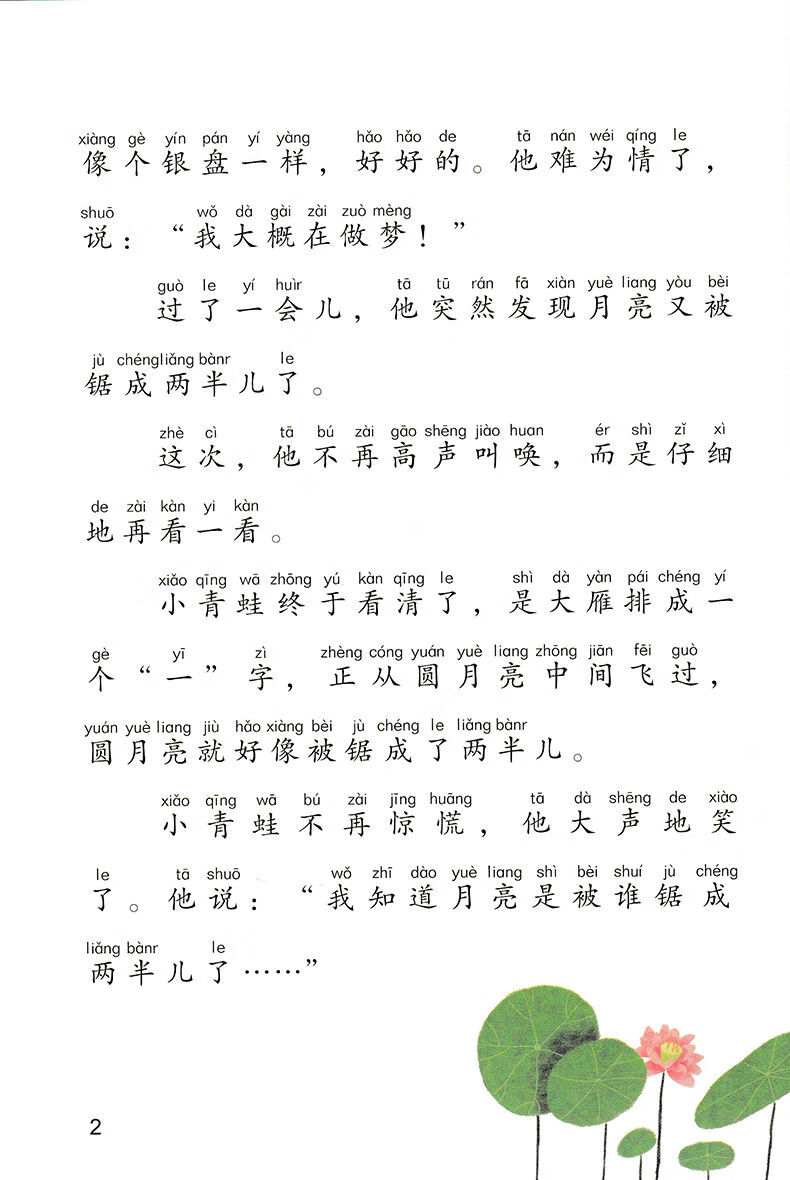 xiàng gè yín pán yí yàng hǎo hǎo de tā nán wéi qíng le
像个银盘一样，好好的。他难为情了，
shuō wǒ dà gài zài zuò mèng
说：“我大概在做梦！”
guò le yí huìr tā tū rán fā xiàn yuè liang yòu bèi
过了一会儿，他突然发现月亮又被
jù chéng liǎng bànr le
锯成两半儿了。
zhè cì tā bú zài gāo shēng jiào huan ér shì zǐ xì
这次，他不再高声叫唤，而是仔细
de zài kàn yi kàn
地再看一看。
xiǎo qīng wā zhōng yú kàn qīng le shì dà yàn pái chéng yí
小青蛙终于看清了，是大雁排成一
gè yī zì zhèng cóng yuán yuè liang zhōng jiān fēi guò
个“一”字，正从圆月亮中间飞过，
yuán yuè liang jiù hǎo xiàng bèi jù chéng le liǎng bànr
圆月亮就好像被锯成了两半儿。
xiǎo qīng wā bú zài jīng huāng tā dà shēng de xiào
小青蛙不再惊慌，他大声地笑
le tā shuō wǒ zhī dào yuè liang shì bèi shuí jù chéng
了。他说：“我知道月亮是被谁锯成
liǎng bànr le
两半儿了……”
2